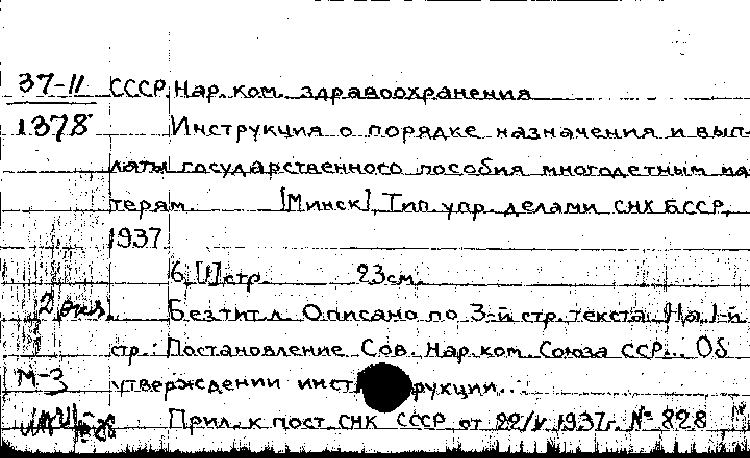 37-11 СССР. Нар. ком. здравоохранения
1378 Инструкция о порядке назначения и вып-
латы государственного пособия многодетным ма-
терям. [Минск], Тип. упр. делами СНК БССР,
1937.
6, [1] стр. 23 см.
2 экз. Без тит. л. Описано по 3-й стр. текста. На 1-й
стр.: Постановление Сов. Нар. ком. Союза ССР... Об
М-3 утверждении инструкции...
Прил. к пост. СНК СССР от 22/V 1937 г. № 828